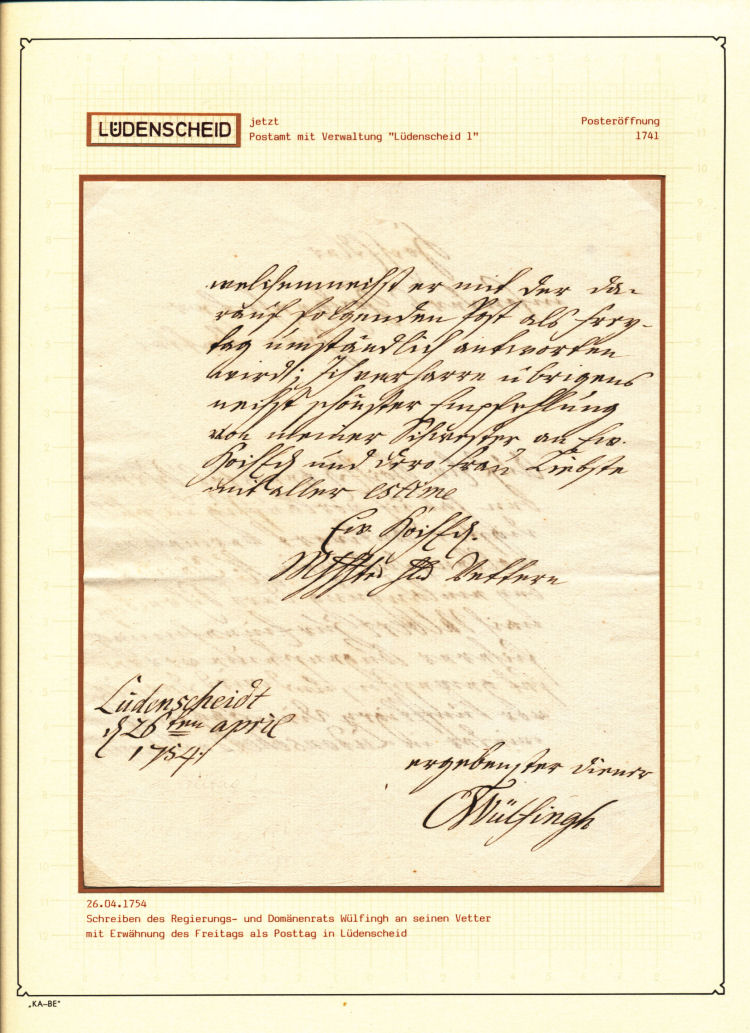 LÜDENSCHEID
jetzt
Postamt mit Verwaltung "Lüdenscheid 1"
Posteröffnung
1741
welchemnechst er mit der da-
rauf folgenden Post als frey-
tag umständlich antworten
wird; Ich verharre übrigens
nechst schönster Empfehlung
von meiner Schwester an Ew.
und dero Frau Liebste
mit aller estime
Ew.
Vettern
Lüdenscheidt
d 26ten april
1754.
ergebenster diener
Wülfingh
26.04.1754
Schreiben des Regierungs- und Domänenrats Wülfingh an seinen Vetter
mit Erwähnung des Freitags als Posttag in Lüdenscheid
„KA-BE"